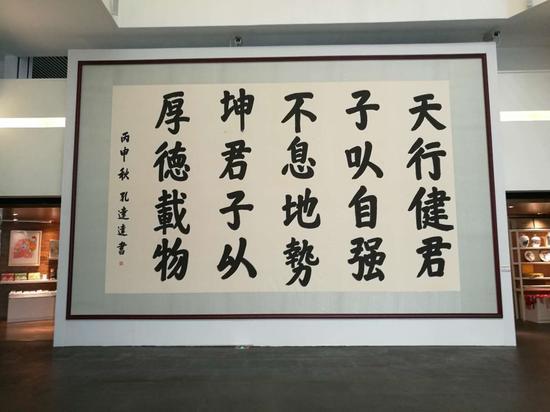 天行健君
子以自强
不息地勢
坤君子以
厚德載物
丙申秋孔達達書